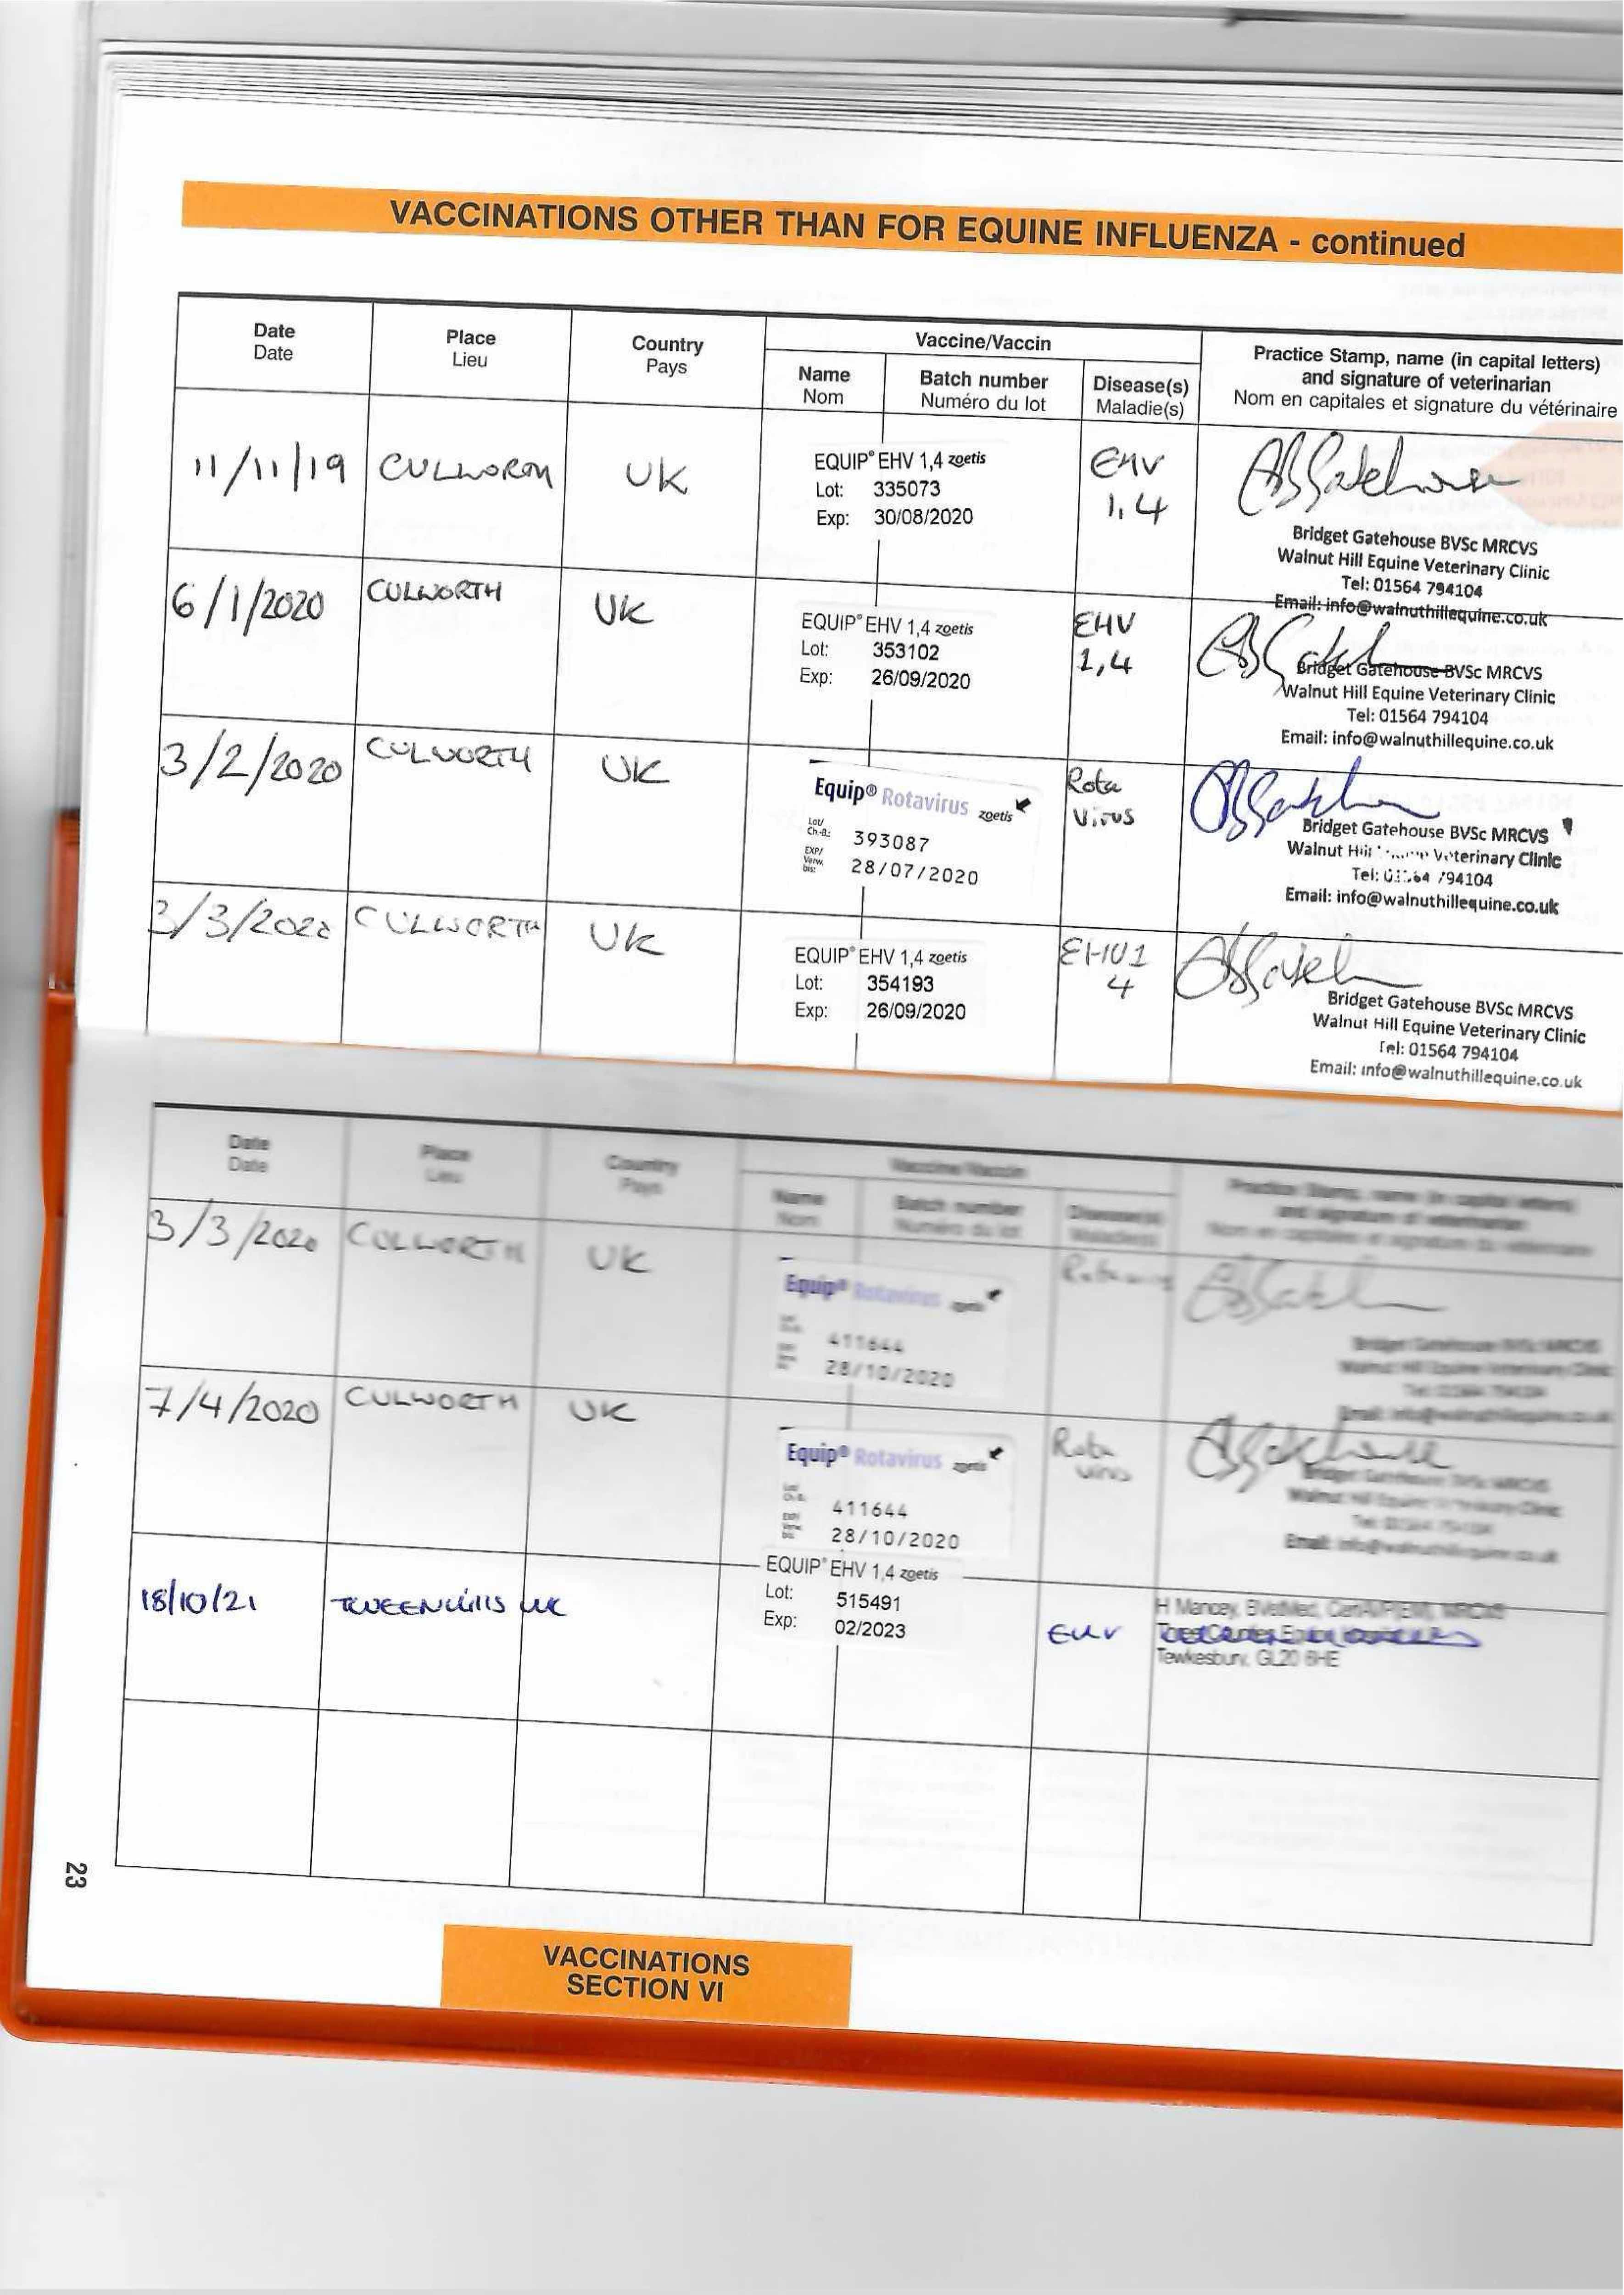 VACCINATIONS OTHER THAN FOR EQUINE INFLUENZA - continued
Date
Date
Place
Lieu
Country
Pays
Vaccine/Vaccin
Name
Nom
Batch number
Numéro du lot
Disease(s)
Maladie(s)
Practice Stamp, name (in capital letters)
and signature of veterinarian
Nom en capitales et signature du vétérinaire
11/11/19 CULWORTH UK
EQUIP® EHV 1,4 zoetis
Lot: 335073
Exp: 30/08/2020
EHV
1,4
Bridget Gatehouse BVSc MRCVS
Walnut Hill Equine Veterinary Clinic
Tel: 01564 794104
Email: info@walnuthillequine.co.uk
6/1/2020 CULWORTH UK
EQUIP® EHV 1,4 zoetis
Lot: 353102
Exp: 26/09/2020
EHV
1,4
Bridget Gatehouse BVSc MRCVS
Walnut Hill Equine Veterinary Clinic
Tel: 01564 794104
Email: info@walnuthillequine.co.uk
3/2/2020 CULWORTH UK
Equip® Rotavirus zoetis
Lot/
Ch.-B.: 393087
EXP/
Verw.
bis: 28/07/2020
Rota
Virus
Bridget Gatehouse BVSc MRCVS
Walnut Hill Veterinary Clinic
Tel: 01564 794104
Email: info@walnuthillequine.co.uk
3/3/2020 CULWORTH UK
EQUIP® EHV 1,4 zoetis
Lot: 354193
Exp: 26/09/2020
EHV1
4
Bridget Gatehouse BVSc MRCVS
Walnut Hill Equine Veterinary Clinic
Tel: 01564 794104
Email: info@walnuthillequine.co.uk
Date
Date
Place
Lieu
Country
Pays
Vaccine/Vaccin
Name
Nom
Batch number
Numéro du lot
Disease(s)
Maladie(s)
Practice Stamp, name (in capital letters)
and signature of veterinarian
Nom en capitales et signature du vétérinaire
3/3/2020 CULWORTH UK
Equip® Rotavirus zoetis
411644
28/10/2020
Rotavirus
Bridget Gatehouse BVSc MRCVS
Walnut Hill Equine Veterinary Clinic
Tel: 01564 794104
Email: info@walnuthillequine.co.uk
7/4/2020 CULWORTH UK
Equip® Rotavirus zoetis
411644
28/10/2020
Rota
virus
Bridget Gatehouse BVSc MRCVS
Walnut Hill Equine Veterinary Clinic
Tel: 01564 794104
Email: info@walnuthillequine.co.uk
18/10/21 TWEENHILLS UK
EQUIP® EHV 1,4 zoetis
Lot: 515491
Exp: 02/2023
EHV
H Mancey, BVetMed, CertAVP(EM), MRCVS
Equine
Tewkesbury, GL20 6HE
23
VACCINATIONS
SECTION VI